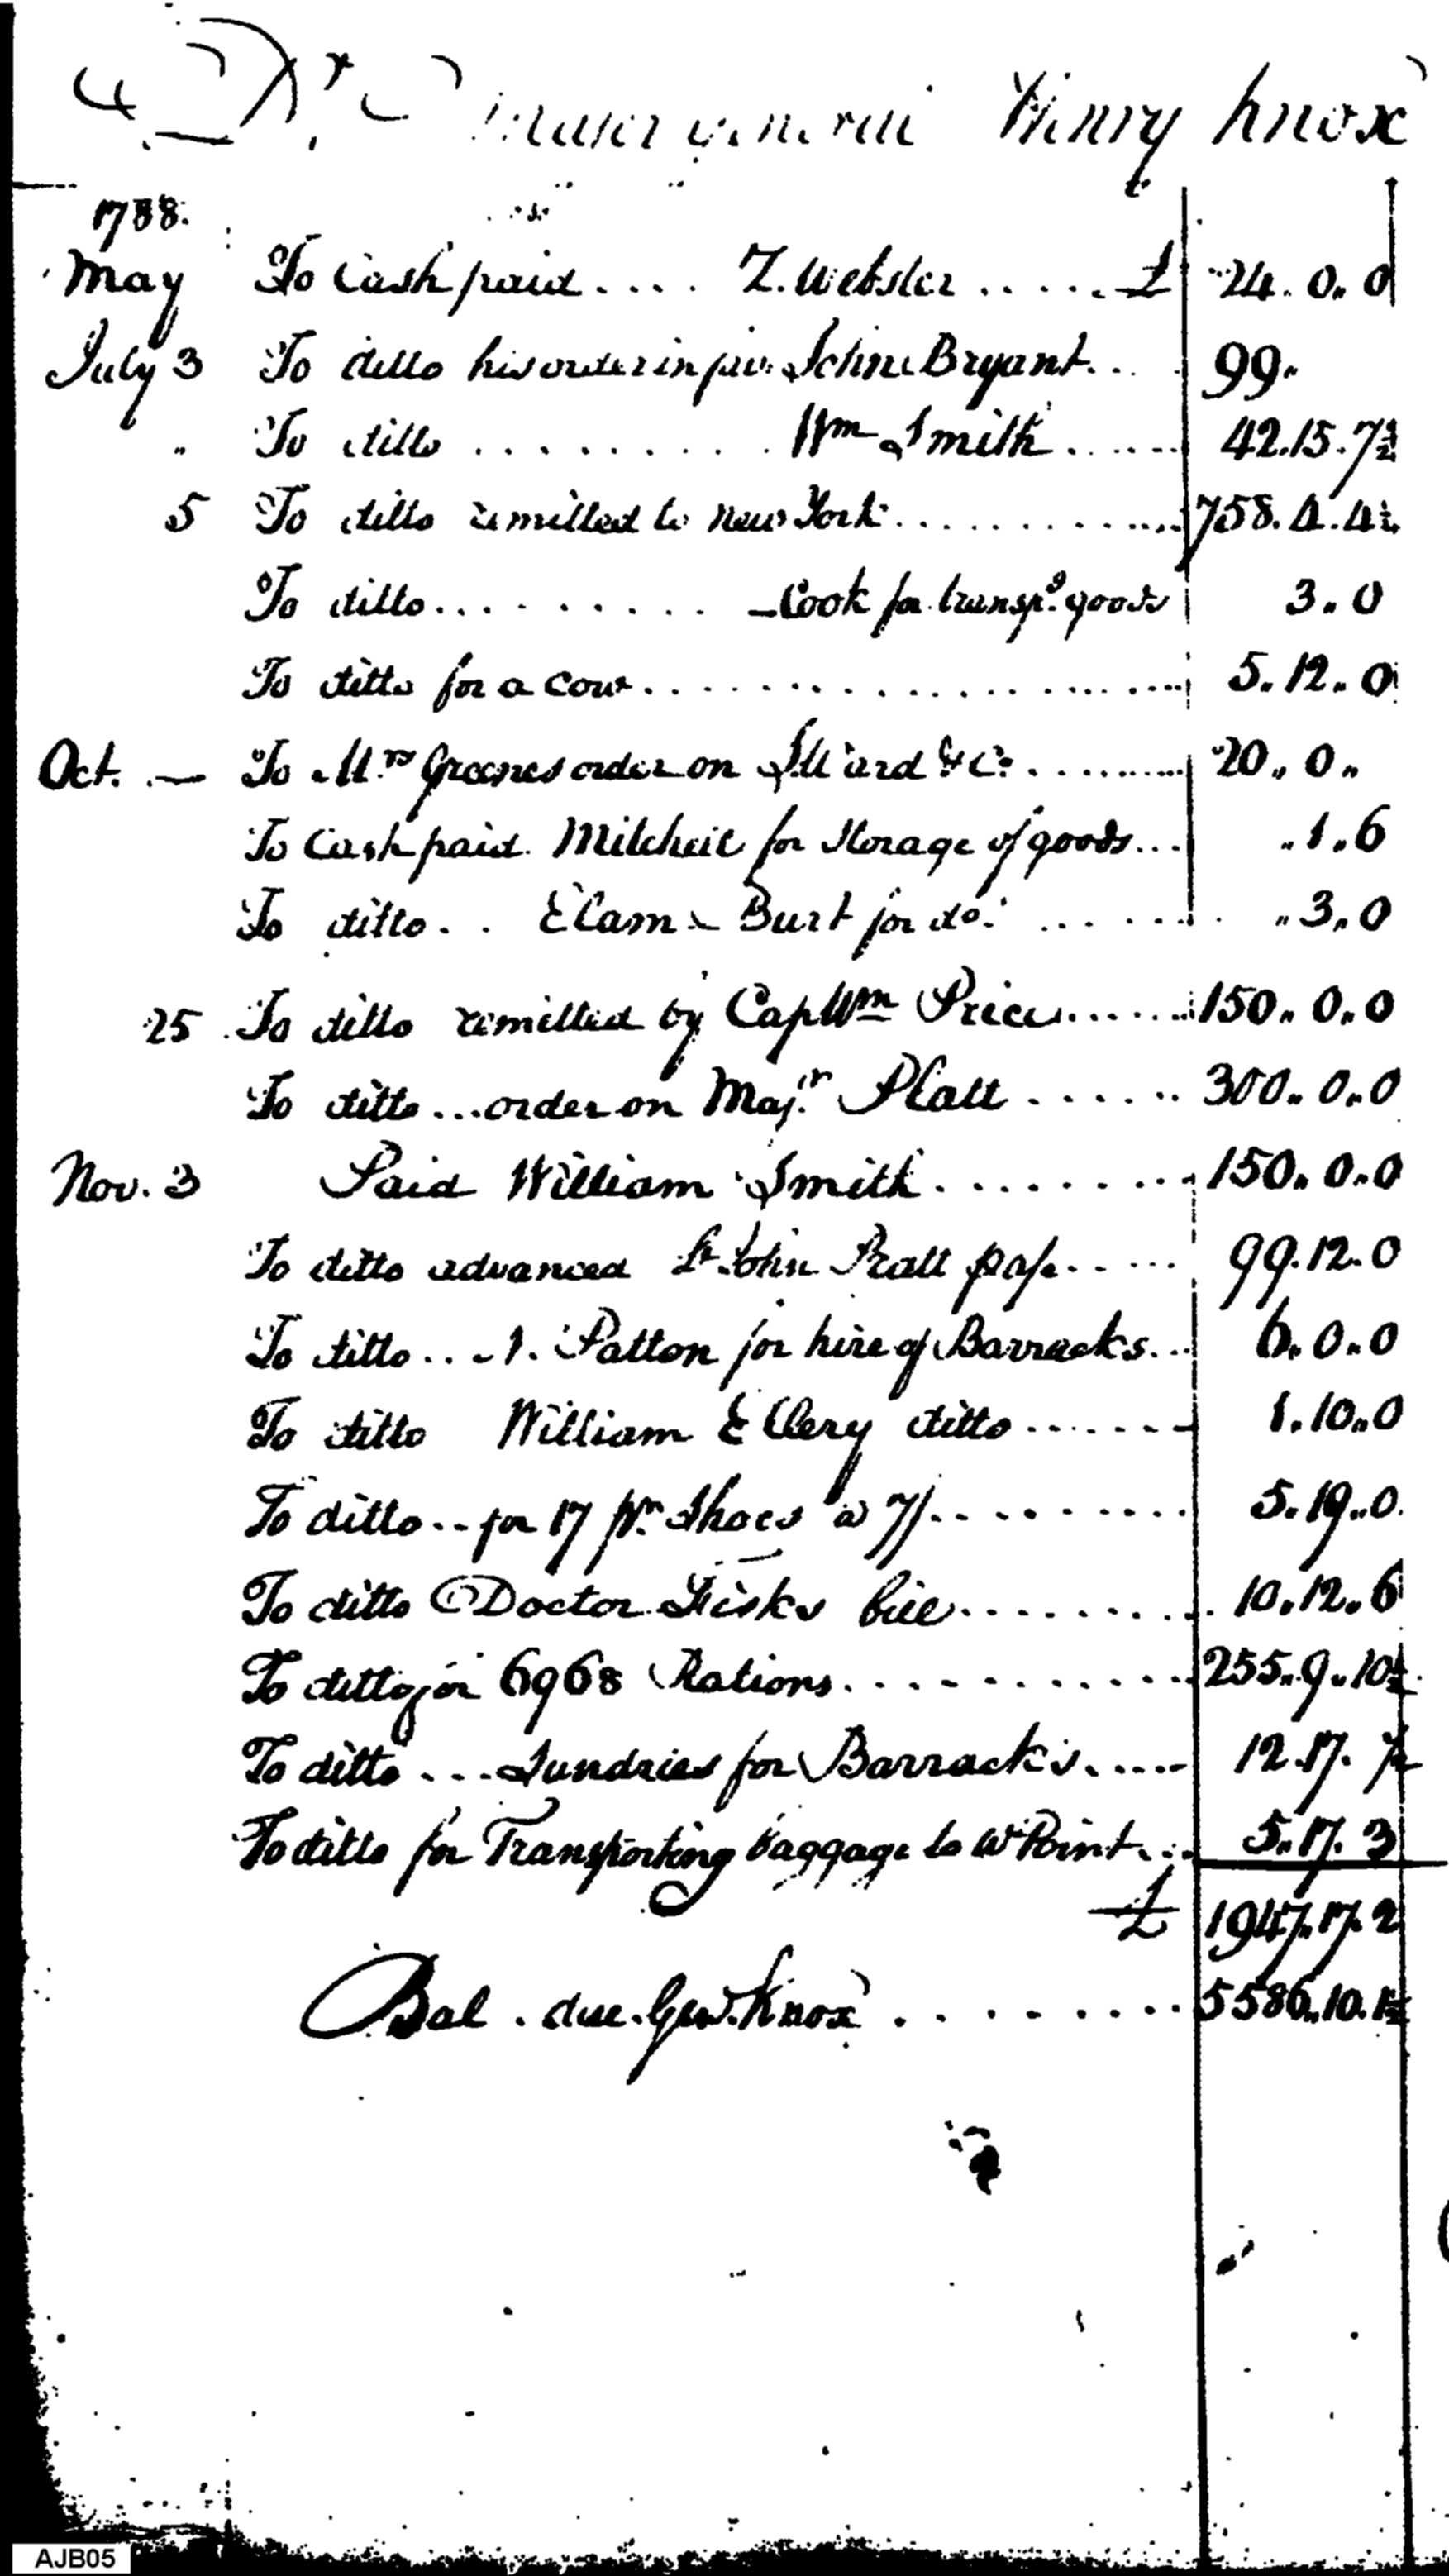 Dr. Major General Henry Knox
1788.
May To Cash paid .... Z. Webster ..... £ 24. 0. 0
July 3 To ditto his order in fav: John Bryant ... 99.
" To ditto .......... Wm Smith ...... 42.15.7½
5 To ditto remitted to New York ............ 758.4.4½
To ditto .......... — Cook for transpg. goods 3.0
To ditto for a Cow .................... 5.12.0
Oct. — To Mrs Greenes order on S. Ward & Co. .......... 20.0.
To Cash paid Mitchell for Storage of goods ... .1.6
To ditto .. Elam Burt for do. ....... .3.0
25 To ditto remitted by Cap Wm Price ...... 150.0.0
To ditto ... order on Majr. Platt ...... 300.0.0
Nov. 3 Paid William Smith ......... 150.0.0
To ditto advanced Lt. John Pratt ..... 99.12.0
To ditto ... Patton for hire of Barracks ... 6.0.0
To ditto William Ellery ditto ....... 1.10.0
To ditto .. for 17 pr. Shoes a 7/ ......... 5.19.0
To ditto Doctor Fisks bill .......... 10.12.6
To ditto for 6968 Rations ........... 255.9.10½
To ditto ... Sundries for Barracks ..... 12.17.
To ditto for Transporting baggage to W Point ... 5.17.3
£ 1947.17.2
Bal. due. Gen. Knox ........ 5586.10.1½
AJB05